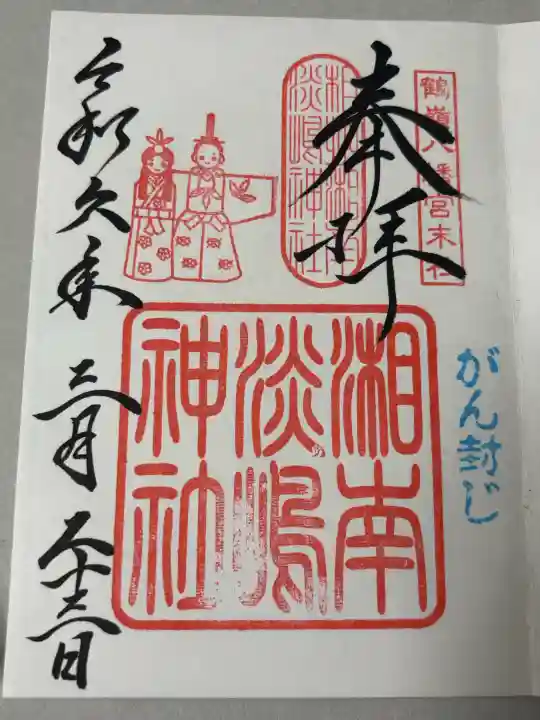 鶴嶺八幡宮末社
がん封じ
奉拝
相州湘南
淡嶋神社
湘南
淡嶋
神社
令和六年 三月 二十三日